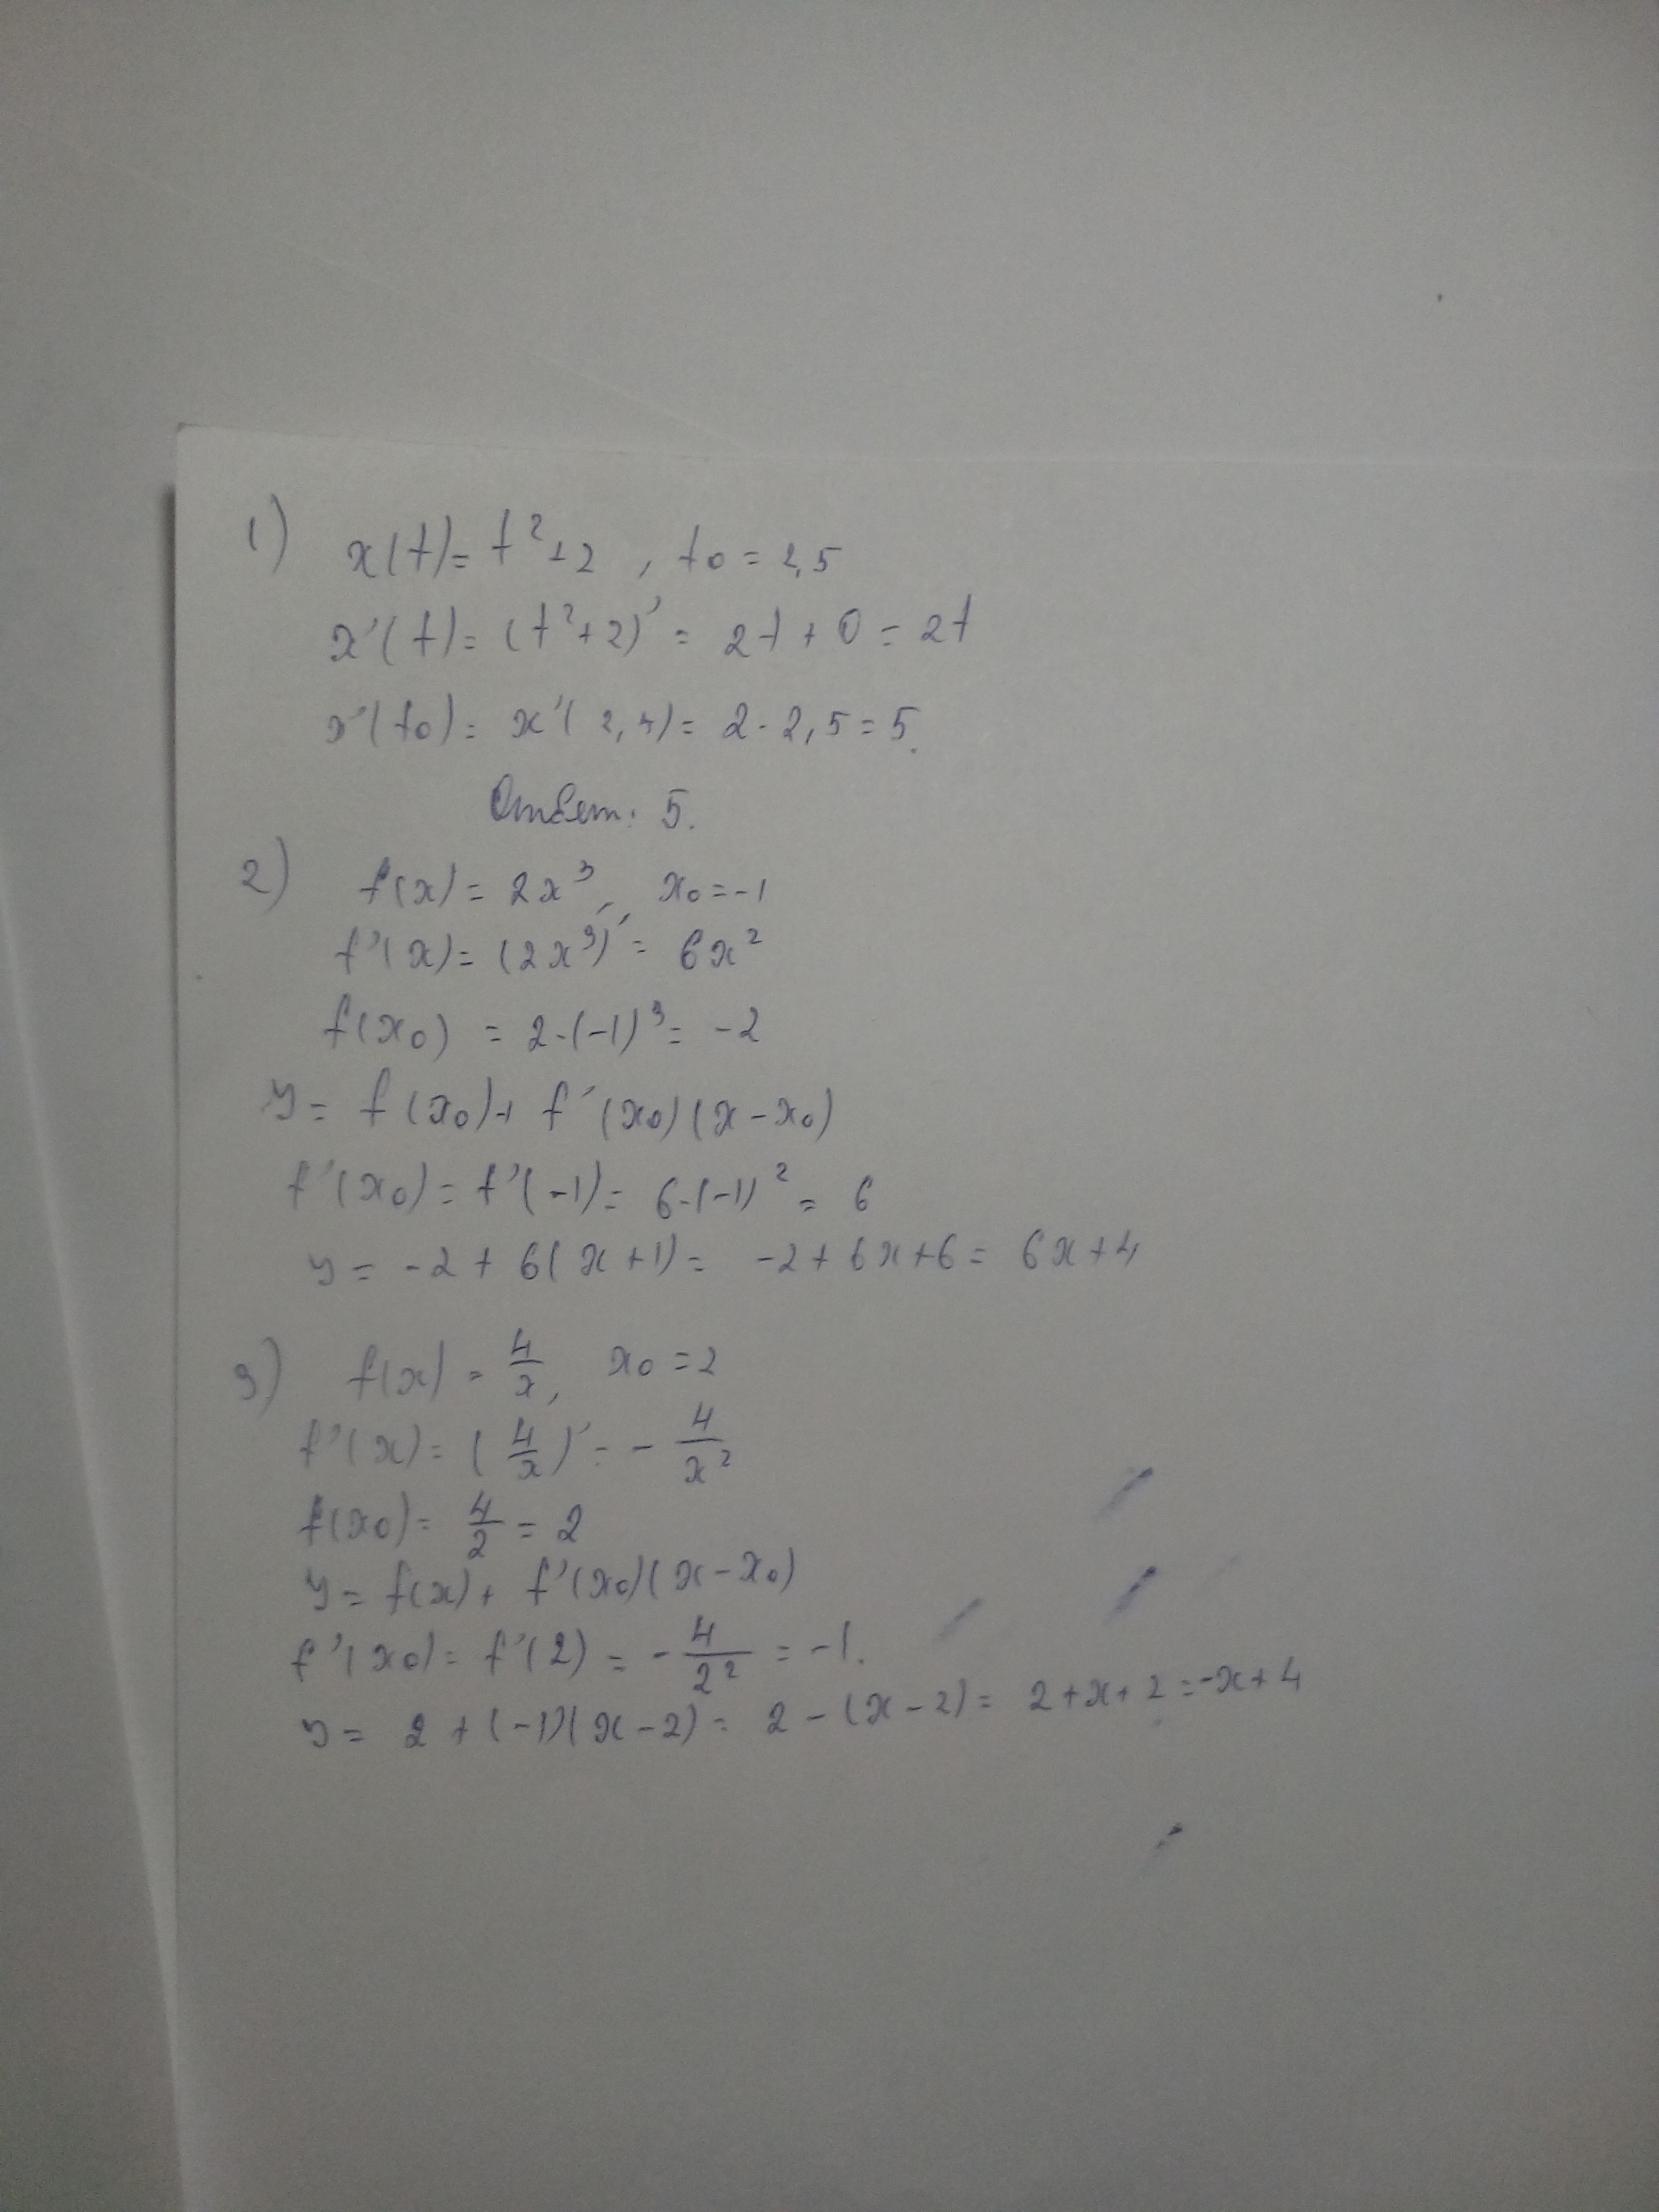 1) x(t)= t²+2, t₀=2,5
x'(t)= (t²+2)' = 2t+0=2t
x'(t₀)= x'(2,4)= 2·2,5=5.
Ответ: 5.
2) f(x)= 2x³, x₀=-1
f'(x)= (2x³)' = 6x²
f(x₀) = 2·(-1)³= -2
y= f(x₀)+ f'(x₀)(x-x₀)
f'(x₀)= f'(-1)= 6·(-1)² = 6
y= -2+ 6(x+1)= -2+6x+6= 6x+4
3) f(x) = 4/x, x₀=2
f'(x)= (4/x)' = - 4/x²
f(x₀)= 4/2 = 2
y= f(x)+ f'(x₀)(x-x₀)
f'(x₀)= f'(2) = - 4/2² = -1.
y= 2+(-1)(x-2)= 2-(x-2)= 2+x+2=-x+4